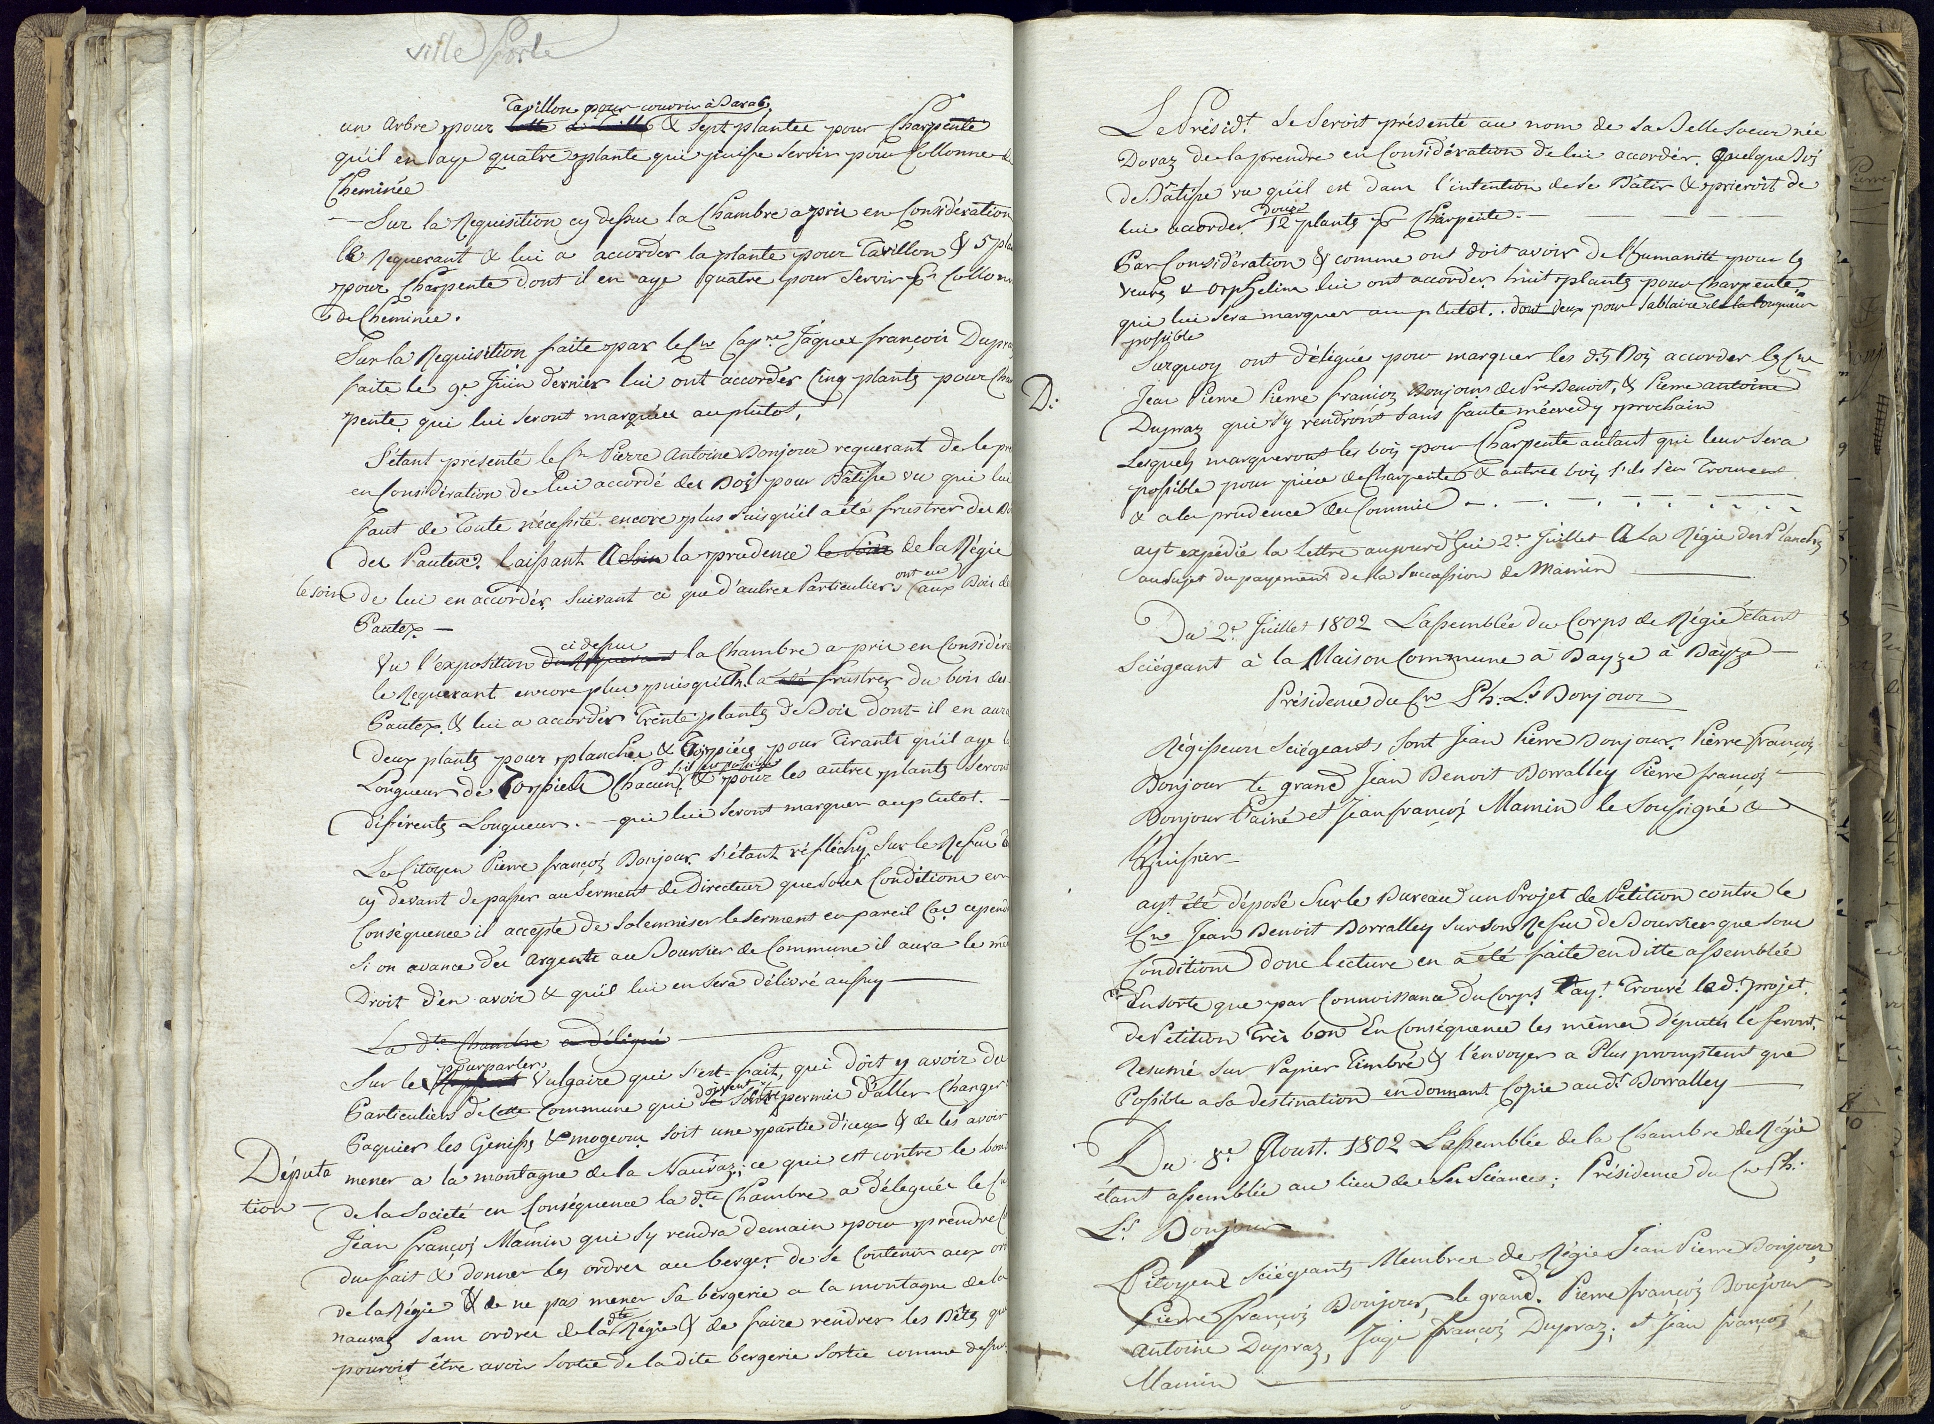 ville forte
Tavillon pour couvrir à
un arbre pour & sept plantee pour Charpente
qu'il en aye quatre plante qui puisse servir pour Collonne de
Cheminée
— Sur la Requisition cy dessue la Chambre a prie en Considération
le Requerant & lui a accordér la plante pour Tavillon & 5 pla
pour Charpente dont il en aye quatre pour servir pr Collonn
de Cheminée.
Sur la Requisition faite par le Cne Capne Jâques françoi Dupraz
faite le 9e Juin dernier lui ont accordér Cinq plants pour Cha
pente qui lui seront marquée auplutot,
S'étant presenté le Cn Pierre Antoine Bonjour requerant de le pr
en Considération de lui accordé des Bois pour Bâtisse vu qui lui
faut de Toute nécessité encore plus puisqu'il a été frustrer des Bo
des Pautex. laissant A Son la prudence le Soin de la Régie
le soin de lui en accordér suivant ce que d'autree Particuliers ont eu aux Bois de
Pautex. —
ci dessue
Vu l'exposition du Requerant la Chambre a prie en Considéra
le Requerant encore plus puisqu'il la été frustrer du bois des
Pautex. & lui a accordér Trente plants de Boie dont il en aura
deux plants pour planchee & pièce pour Tirante qu'il aye la
s'il est possible
Longueur de Chacun, & pour les autree plants seront
différents Longueur. — qui lui seront marquer auplutot.
Le Citoyen Pierre françois Bonjour s'étant réfléchy sur le Refue
cy devant de passer au Serment de Directeur que sous Conditione en
Conséquence il accepte de solemniser le Serment en pareil Cas cepend
si on avance des argente au Boursier de Commune il aura le mê
Droit d'en avoir & qu'il lui en sera délivré aussy —
La dte Chambre a délégué
pourparler
Sur le Vulgaire qui s'est fait, qui doit y avoir de
Particuliers de Cette Commune qui permie d'aller Changer
Paquier les Geniss & mogeonx soit une partie d'iceux & de les avoir
Députa mener a la montagne de la Nauvaz; ce qui est contre le bon
tion — de la Societé en Conséquence la dte Chambre a délegués le Cn
Jean françois Mamin qui sy rendra demain pour prendre
du fait & donner les ordres au berger de se Contenir aux or
de la Régie & de ne pas mener sa bergerie a la montagne de la
nauvaz sans ordree de la dte Régie & de faire rendrer les Bêtes qui
pouroit être avoir sortie de la dite bergerie sortie comme dessus
Le Présidt. se seroit présenté au nom de sa Belle soeur née
Dovaz de la prendre en Considération de lui accordér quelque Bois
de Bâtisse vu qu'il est dans l'intention de se Bâtir & prieroit de
douze
lui accorder 12 plants pr Charpente. —
Par Considération & comme ont doit avoir de l'humanité pour les
veuves & orpheline lui ont accorder huit plants pour Charpente,
qui lui sera marquer au plutot.. dont deux pour sablaire de la longueur
possible
Surquoy ont d'éligués pour marquer les dts Bois accorder les Cne
D: Jean Pierre Pierre françois Bonjours de Pre Benoit, & Pierre antoine
Dupraz qui sy rendront sans faute mécredy prochain
Lesquels marqueront les bois pour Charpente autant qui leur sera
possible pour pièce de Charpente & autree bois s'ils s'en Trouvent
& a la prudence des Commie —
ayt expédié la Lettre aujourd'hui 2e Juillet A La Régie des Planches
au sujet du payement de la Succession de Mamin —
Du 2e Juillet 1802 Lassemblée du Corps de Régie étant
Sciégeant à la Maison Commune à Bayze à Bayze —
Présidence du Cne Ph. Ls Bonjour
Régisseurs Sciégeants sont Jean Pierre Bonjour. Pierre françois
Bonjour le grand Jean Benoit Borralley Pierre françois
Bonjour l'ainé et Jean françois Mamin le Soussigné &
huissier —
ayt été déposé Sur le Bureau un Projet de Pétition contre le
Cne Jean Benoit Borralley sur son Refus de Boursier que sous
Conditione donc lecture en a été faite en ditte assemblée
Ensorte que par Connoissance du Corps Layt Trouvé le dt projet
de Petition Très bon En Conséquence les mêmes députés le feront
Resumé sur Papier Timbré & l'envoyer a Plus promptemt que
Possible a sa destination en donnant Copie au dt Borralley —
Du 8e Aoust. 1802 L'assemblée de la Chambre de Régie
étant assemblée au lieu de Ses Séances; Présidence du Cne Ph:
Ls Bonjour
Citoyens Sciégeants Membres de Régie Jean Pierre Bonjour
Pierre françois Bonjour, le grand. Pierre françois Bonjour
Antoine Dupraz, Juge françois Dupraz; et Jean françois
Mamin —